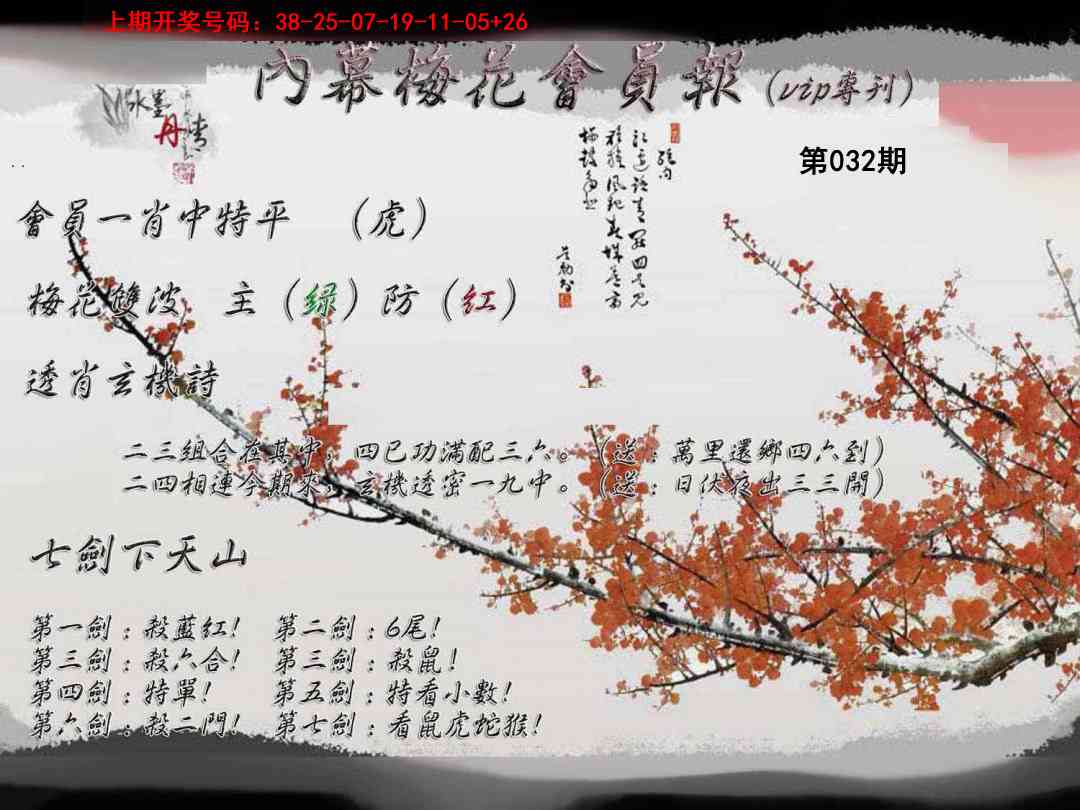 上期开奖号码：38-25-07-19-11-05+26
內幕梅花會員報(vip專刊)
水墨
丹青
第032期
會員一肖中特平 （虎）
梅花雙波 主（绿）防（红）
透肖玄機詩
二三組合在其中，四已功滿配三六。（送：萬里還鄉四六到）
二四相連今期來，玄機透密一九中。（送：日伏夜出三三開）
七劍下天山
第一劍：殺藍紅！ 第二劍：6尾！
第三劍：殺六合！ 第三劍：殺鼠！
第四劍：特單！ 第五劍：特看小數！
第六劍：殺二門！ 第七劍：看鼠虎蛇猴！